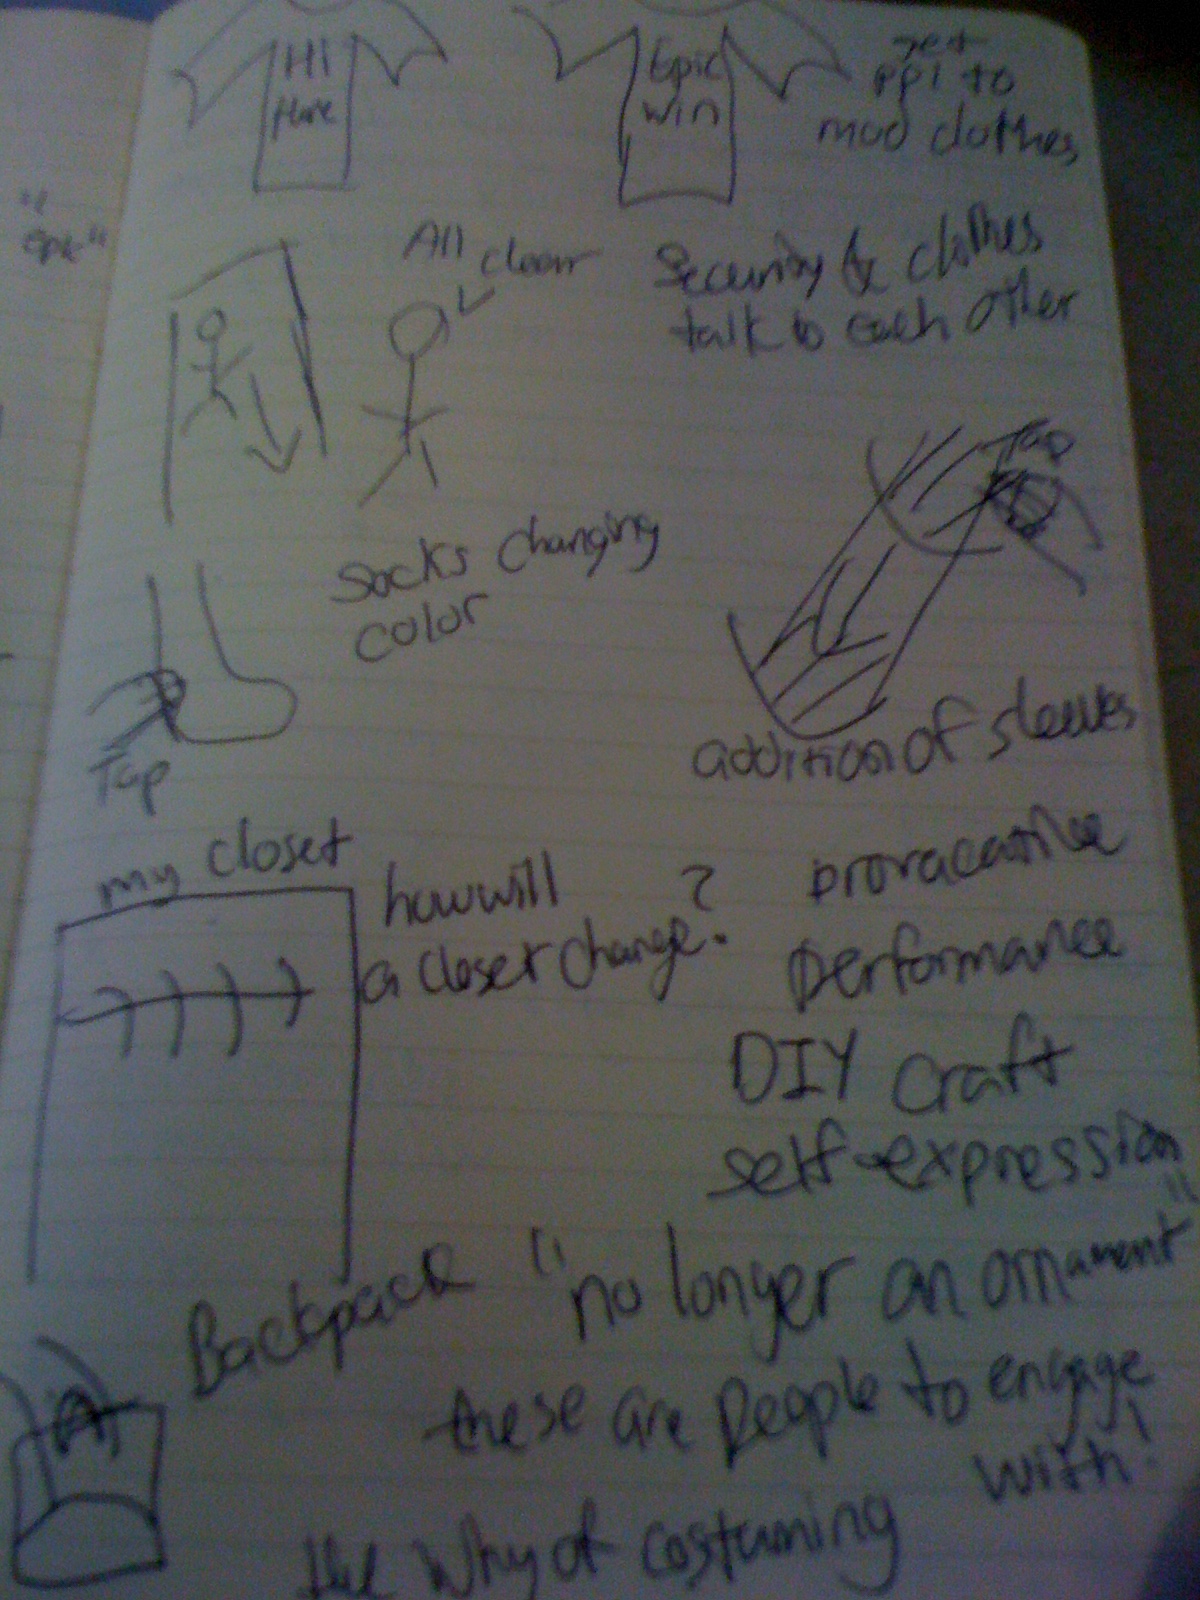 HI
Epic
win
get
ppl to
mod clothes
"epic"
All clear
Security & clothes
talk to each other
Tap
socks changing
color
Tap
addition of sleeves
my closet
how will
a closet change?
provacative
performance
DIY craft
self-expression
Backpack
"no longer an ornament"
these are people to engage
with!
the why of costuming